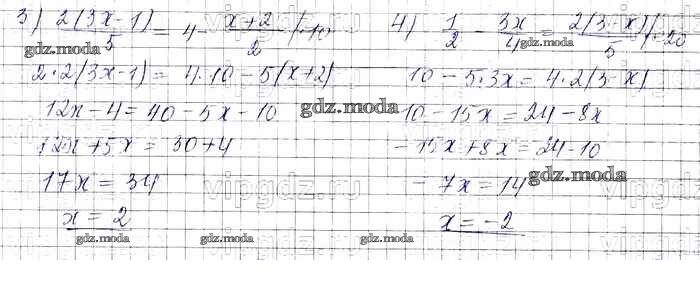 3) 2(3x-1)/5 = 4 - x+2/2 | ·10
2·2(3x-1) = 4·10 - 5(x+2)
12x - 4 = 40 - 5x - 10
12x + 5x = 30 + 4
17x = 34
x = 2
4) 1/2 - 3x/4 = 2(3-x)/5 | ·20
10 - 5·3x = 4·2(3-x)
10 - 15x = 24 - 8x
-15x + 8x = 24 - 10
-7x = 14
x = -2
gdz.moda
gdz.moda
gdz.moda
gdz.moda
gdz.moda
gdz.moda
gdz.moda
gdz.moda
gdz.moda
gdz.moda
vipgdz.ru
vipgdz.ru